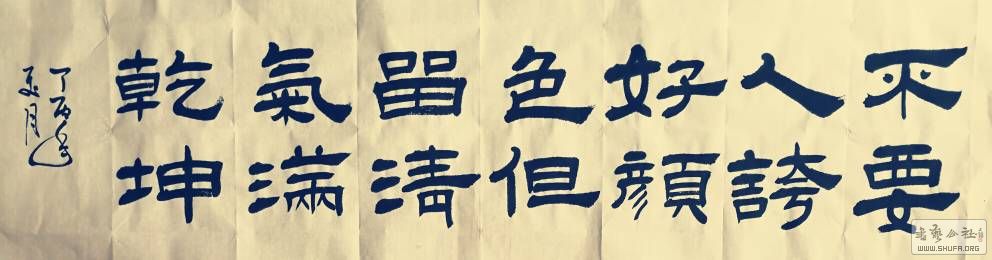 不要
人誇
好顏
色但
留清
氣滿
乾坤
丁酉年
夏月
書藝公社
WWW.SHUFA.ORG